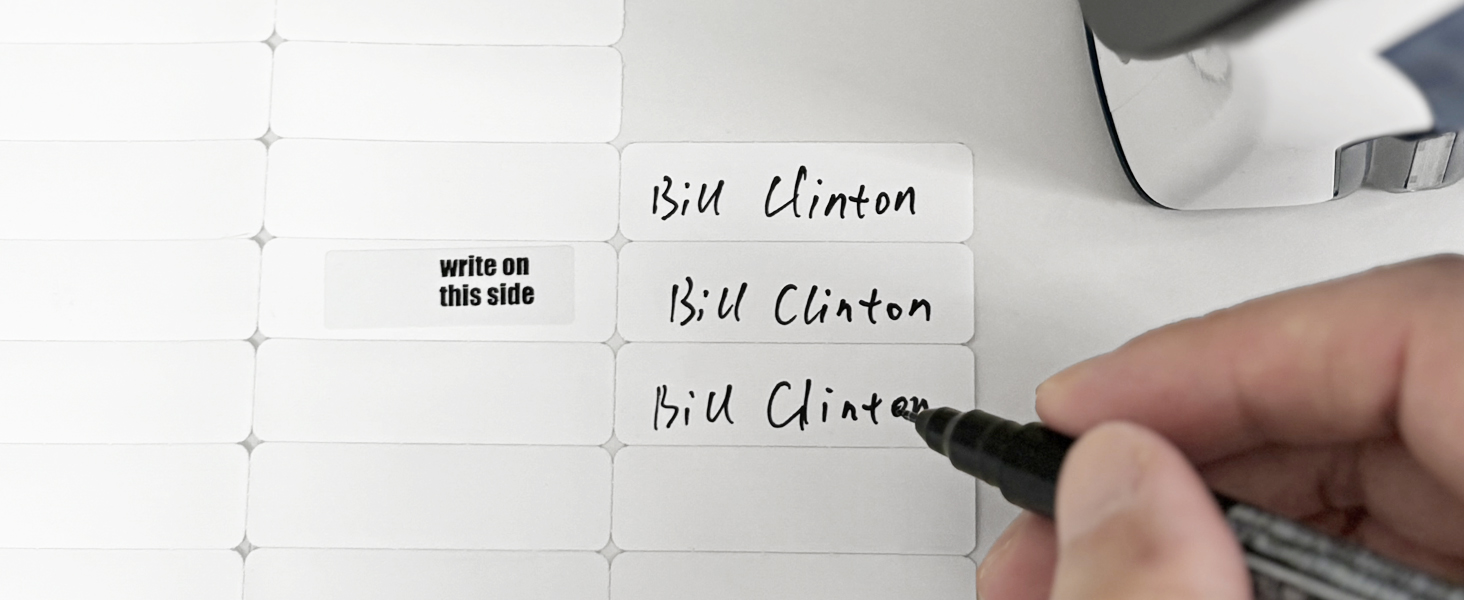 Bill Clinton
write on
this side
Bill Clinton
Bill Clinton